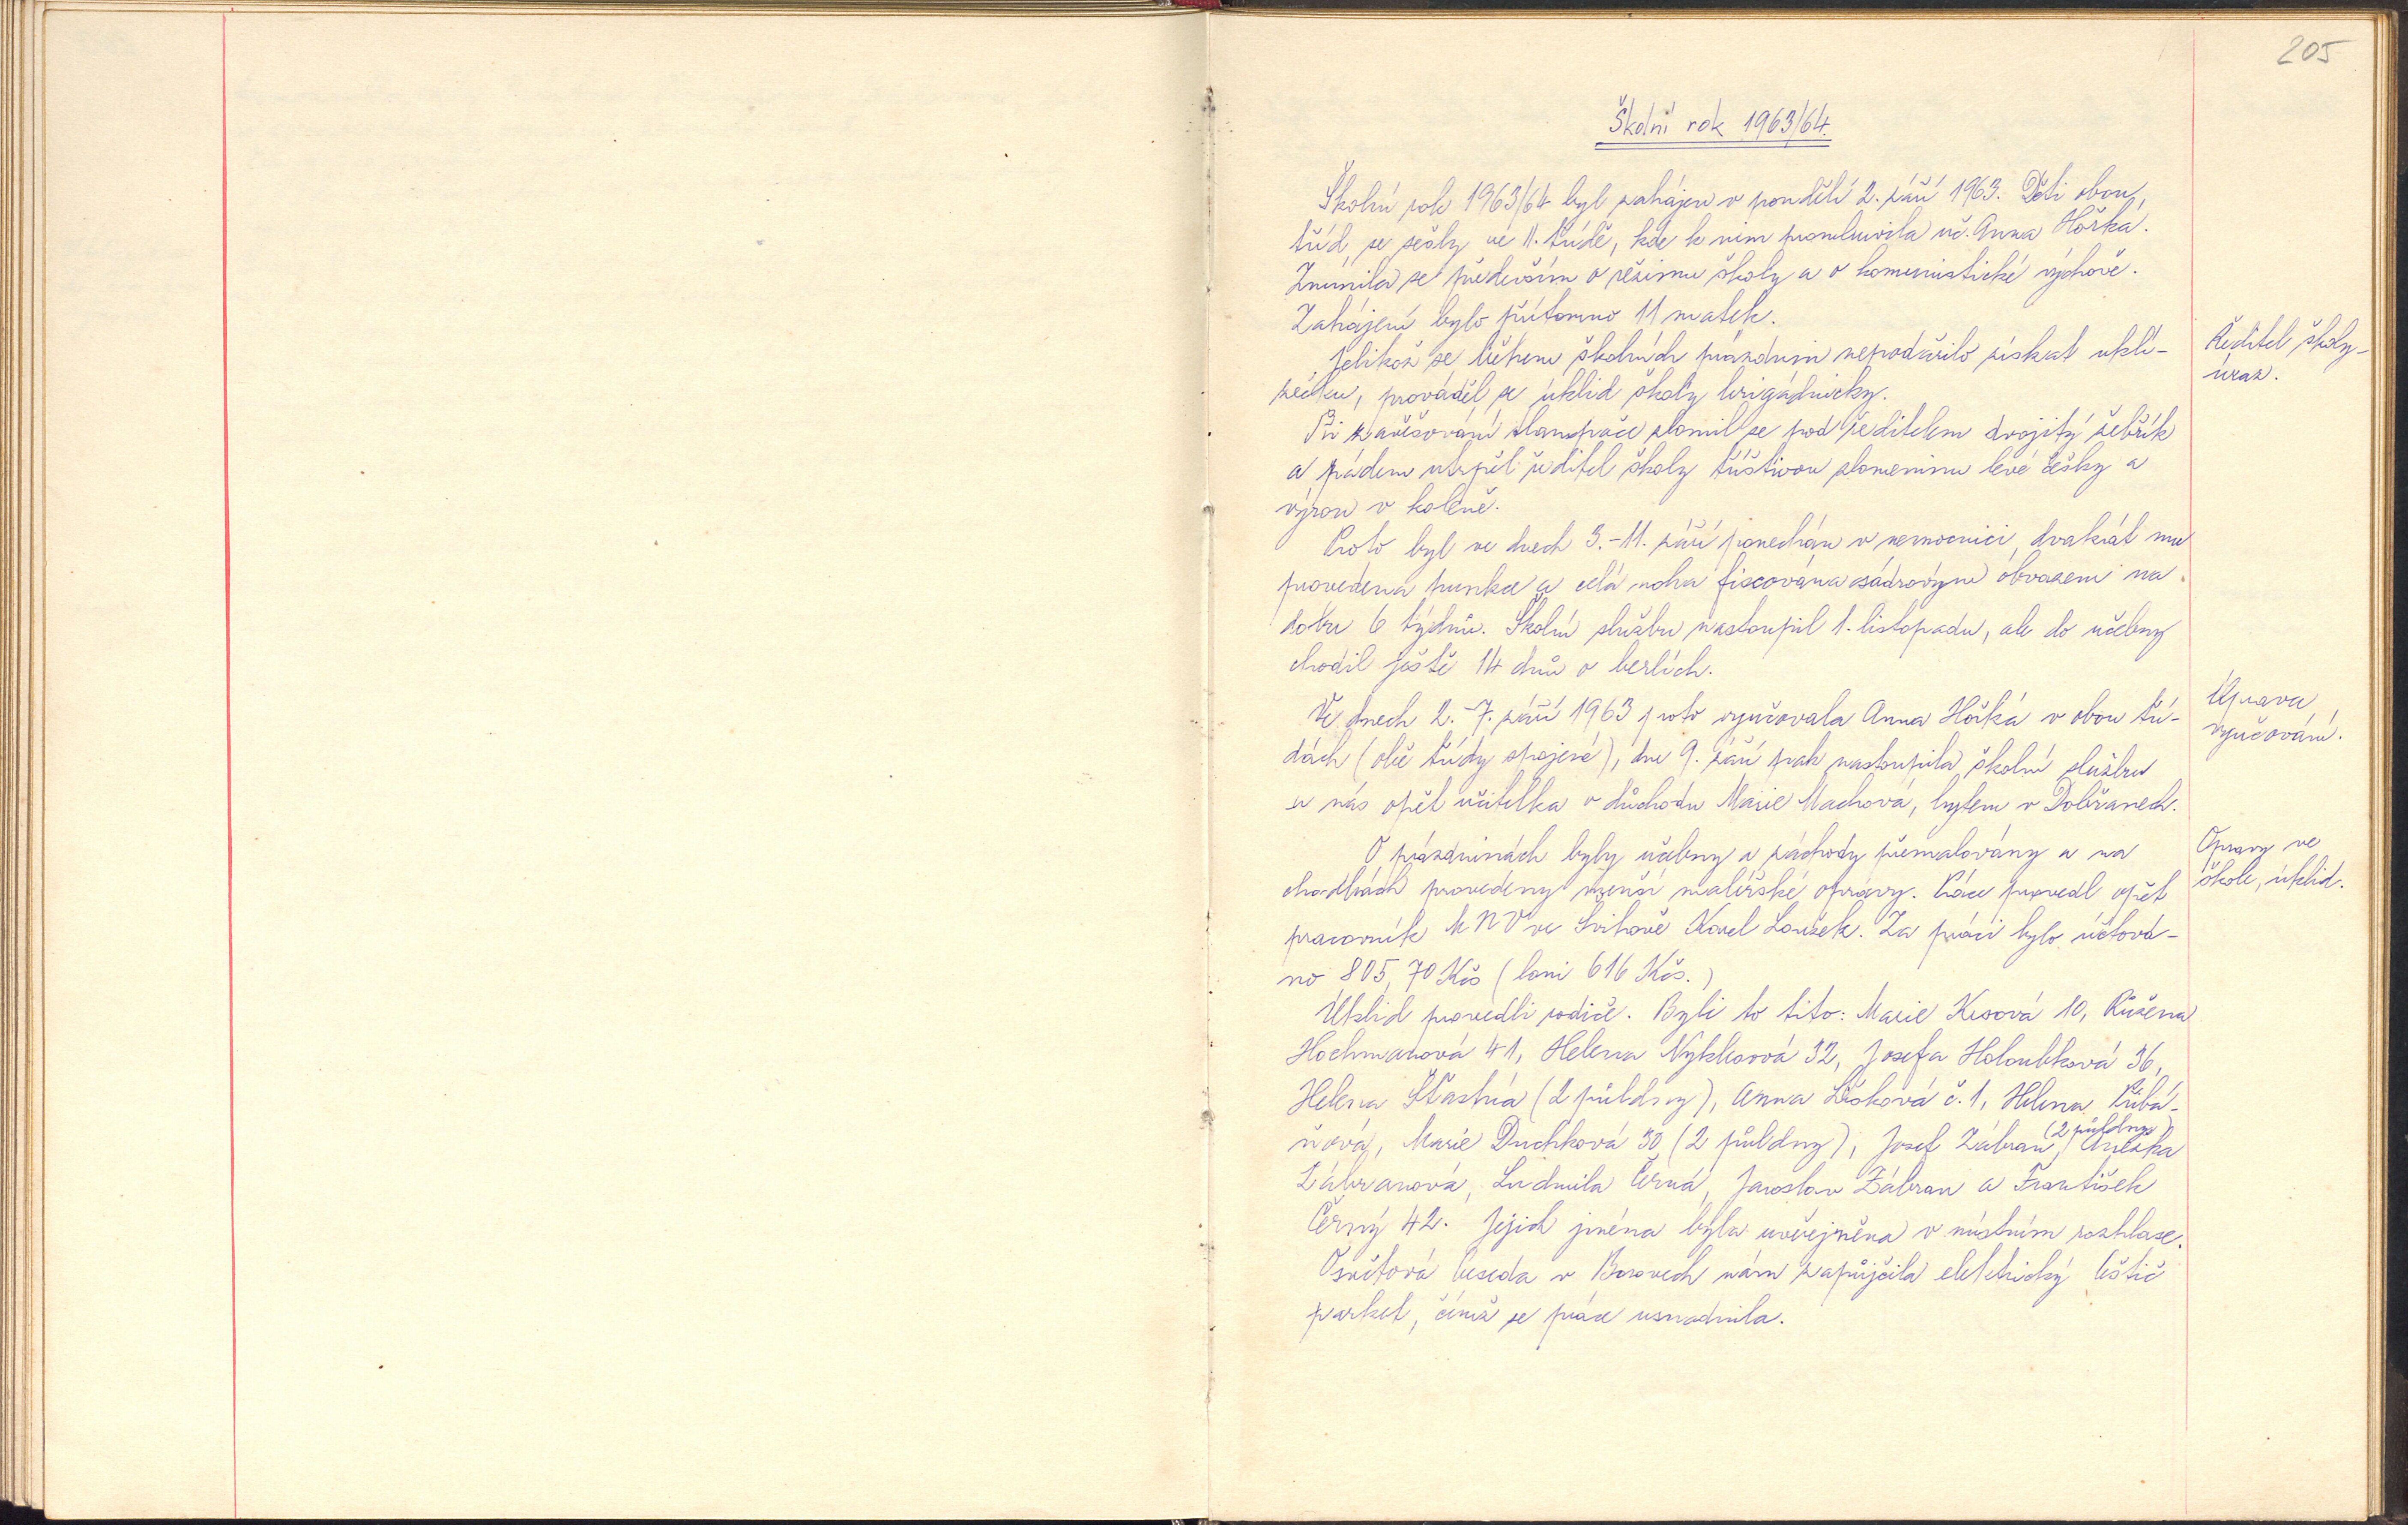 205
Školní rok 1963/64.
Školní rok 1963/64 byl zahájen v pondělí 2. září 1963. Děti obou
tříd se sešly ve II. třídě, kde k nim promluvila uč. Anna Hořká.
Zmínila se především o režimu školy a o komunistické výchově.
Zahájení bylo přítomno 11 matek.
Jelikož se během školních prázdnin nepodařilo získat uklí-
zečku, prováděl se úklid školy brigádnicky.
Ředitel školy-
úraz.
Při zavěšování zlomil se pod ředitelem dvojitý žebřík
a pádem utrpěl ředitel školy tříštivou zlomeninu levé čéšky a
výron v koleně.
Proto byl ve dnech 3.-11. září ponechán v nemocnici, dvakrát mu
provedena punkce a celá noha fixována sádrovým obvazem na
dobu 6 týdnů. Školní službu nastoupil 1. listopadu, ale do učebny
chodil ještě 14 dnů o berlích.
Ve dnech 2.-7. září 1963 proto vyučovala Anna Hořká v obou tří-
dách (obě třídy spojené), dne 9. září pak nastoupila školní službu
u nás opět učitelka v důchodu Marie Machová, bytem v Dobřanech.
Úprava
vyučování.
O prázdninách byly učebny a záchody přemalovány a na
chodbách provedeny menší malířské opravy. Práce provedl opět
pracovník MNV ve Švihově Karel Loužek. Za práci bylo účtová-
no 805,70 Kčs (loni 616 Kčs.)
Opravy ve
škole, úklid.
Úklid provedli rodiče. Byli to tito: Marie 10, Růžena
Hochmanová 41, Helena 32, Josefa Holoubková 36,
Helena Šťastná (2 půldny), Anna Lišková č. 1, Helena Přibá-
ňová, Marie Duchková 30 (2 půldny), Josef Zábran (2 půldny), Anežka
Zábranová, Ludmila Černá, Jaroslav Zábran a František
Černý 42. Jejich jména byla uveřejněna v místním rozhlase.
Osvětová beseda v Borovech nám zapůjčila elektrický leštič
parket, čímž se práce usnadnila.